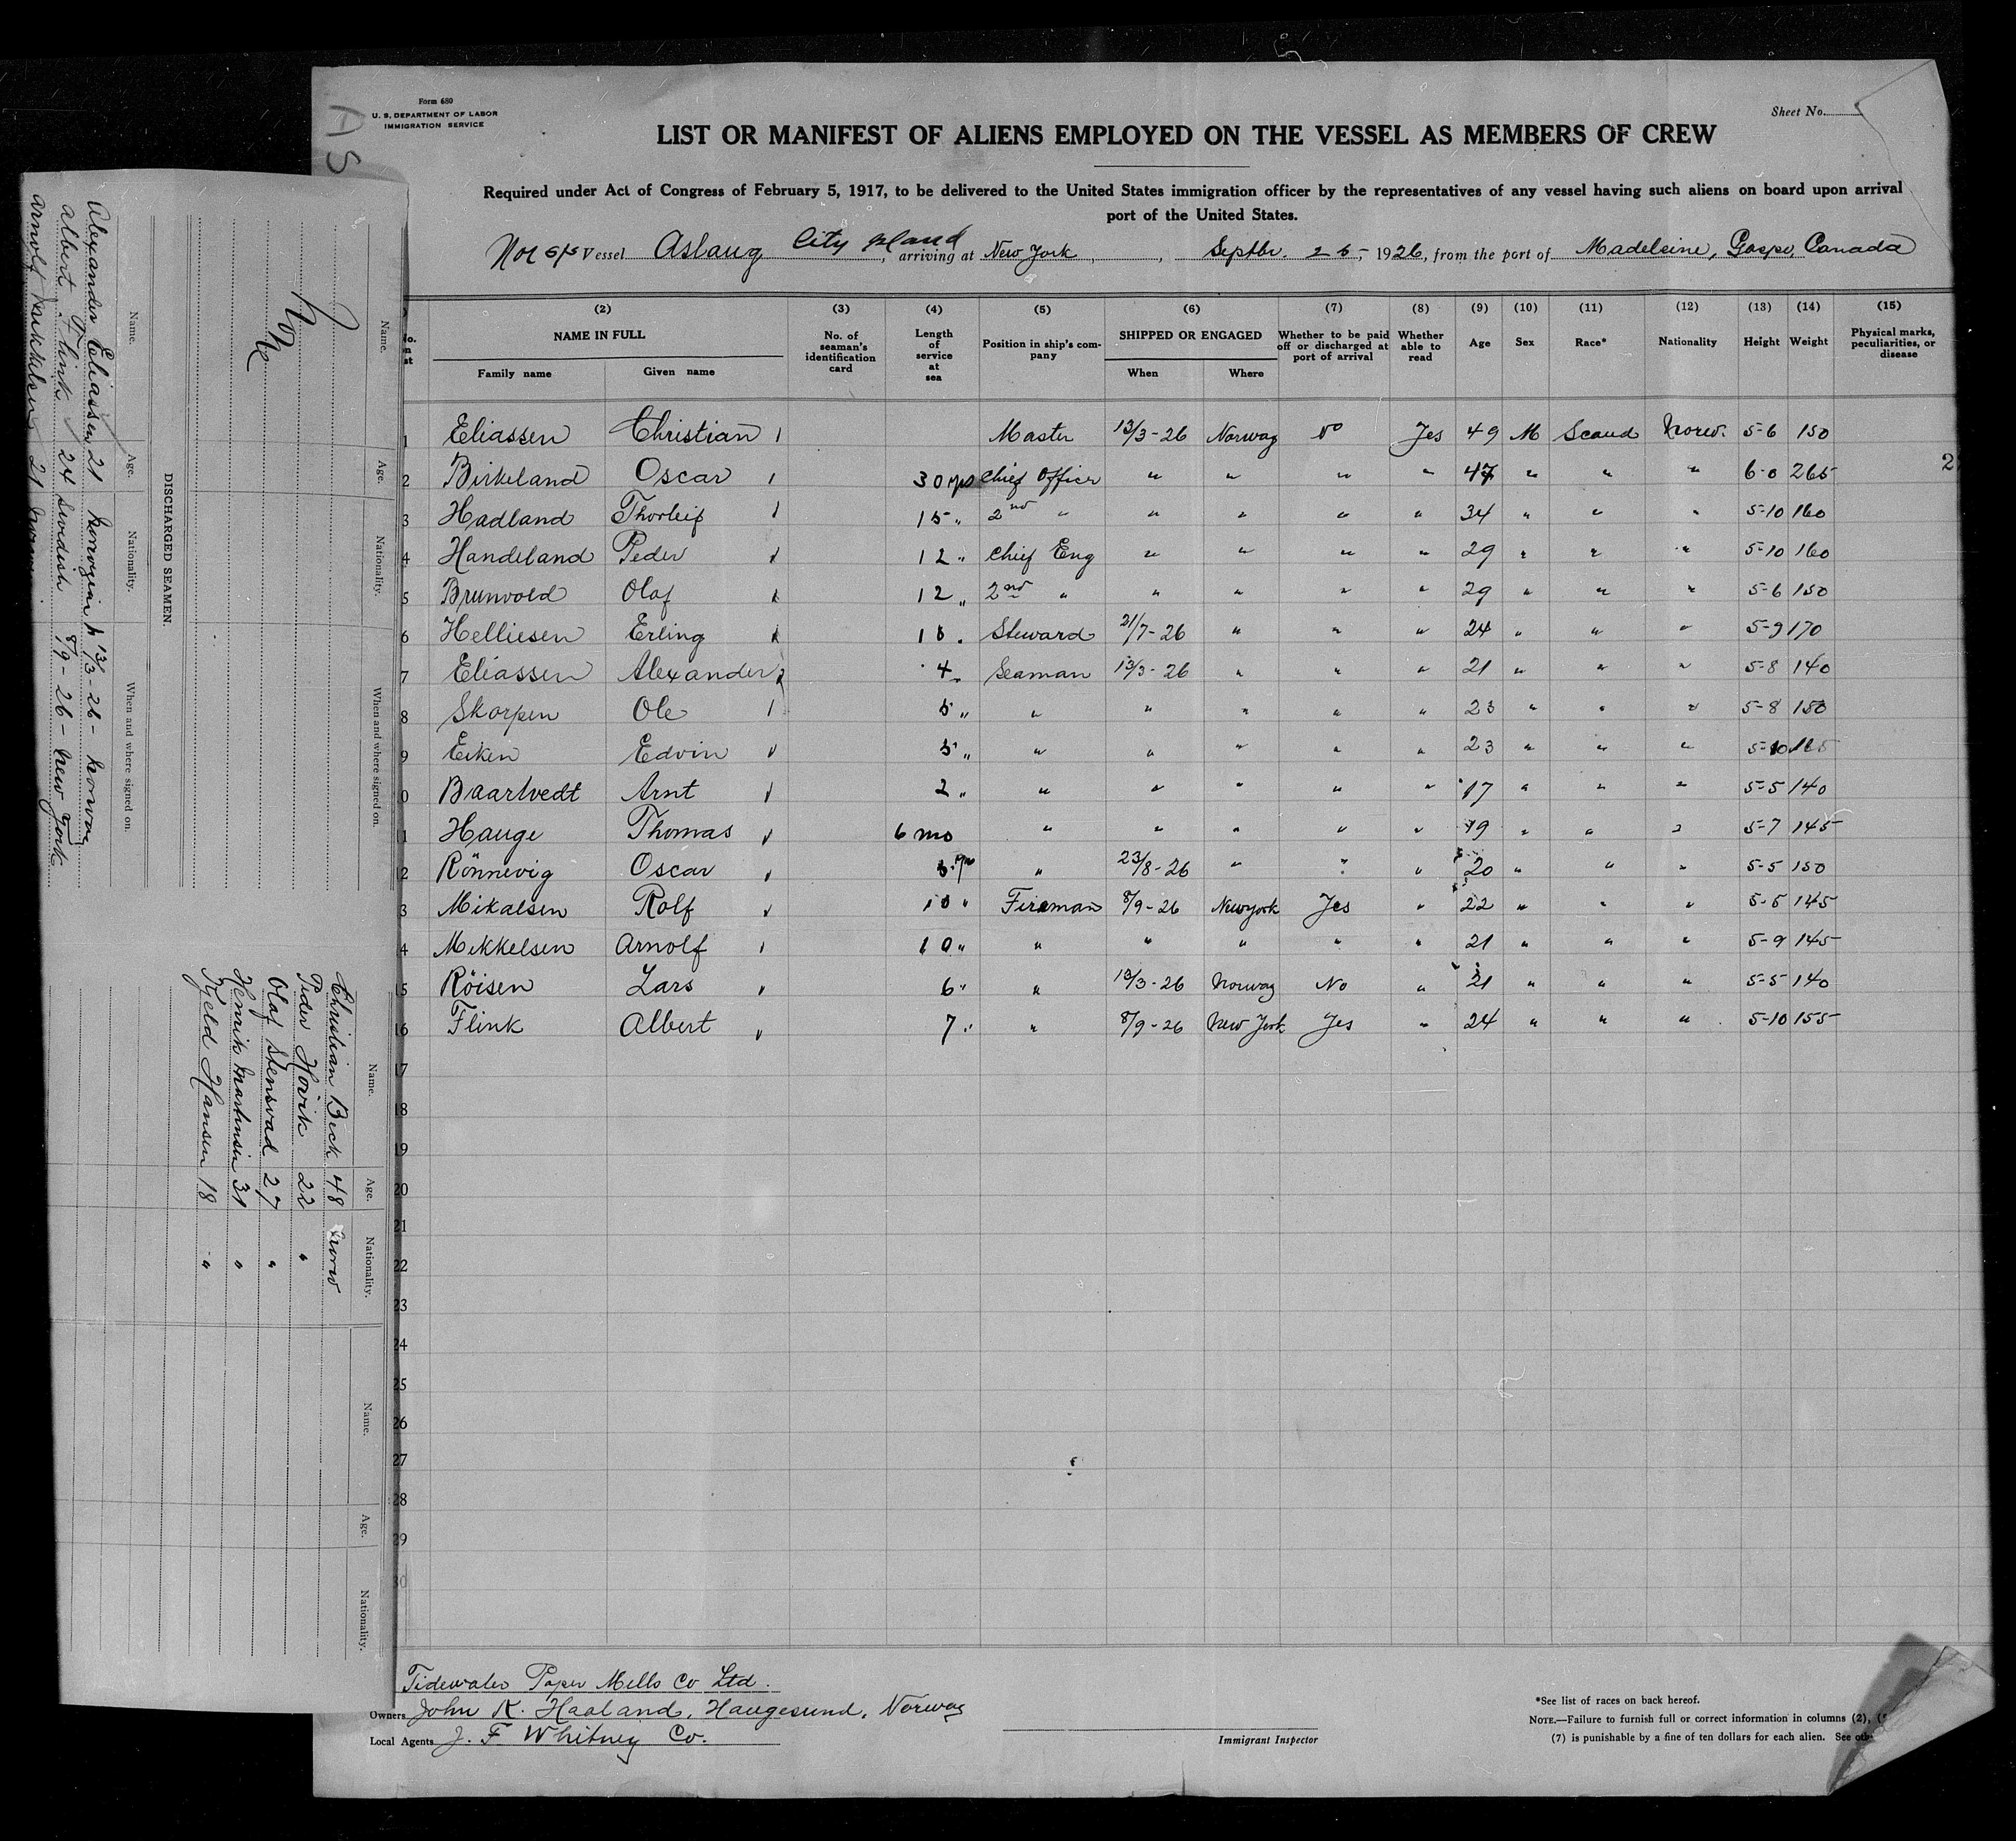 Form 680
U. S. DEPARTMENT OF LABOR
IMMIGRATION SERVICE
Sheet No.
LIST OR MANIFEST OF ALIENS EMPLOYED ON THE VESSEL AS MEMBERS OF CREW
Required under Act of Congress of February 5, 1917, to be delivered to the United States immigration officer by the representatives of any vessel having such aliens on board upon arrival
port of the United States.
Nor S/S Vessel Aslaug City Island, arriving at New York, Septbr. 25, 1926, from the port of Madeleine, Gaspe, Canada
(2) (3) (4) (5) (6) (7) (8) (9) (10) (11) (12) (13) (14) (15)
NAME IN FULL No. of seaman's identification card Length of service at sea Position in ship's company SHIPPED OR ENGAGED Whether to be paid off or discharged at port of arrival Whether able to read Age Sex Race* Nationality Height Weight Physical marks, peculiarities, or disease
Family name Given name When Where
1 Eliassen Christian Master 13/3-26 Norway No Yes 49 M Scand Norw. 5-6 150
2 Birkeland Oscar 30 yrs Chief Officer " " " " 47 " " " 6-0 265
3 Hadland Thorleif 15 " 2nd " " " " " 34 " " " 5-10 160
4 Handeland Peder 12 " Chief Eng " " " " 29 " " " 5-10 160
5 Brunvold Olaf 12 " 2nd " " " " " 29 " " " 5-6 150
6 Helliesen Erling Steward 21/7-26 " " " 24 " " " 5-9 170
7 Eliassen Alexander 4 " Seaman 13/3-26 " " " 21 " " " 5-8 140
8 Skorpen Ole 5 " " " " " " 23 " " " 5-8 150
9 Eiken Edvin 5 " " " " " " 23 " " " 5-10 165
0 Baartvedt Arnt 2 " " " " " " 17 " " " 5-5 140
1 Hauge Thomas 6 mo " " " " " 19 " " " 5-7 145
2 Rönnevig Oscar " 23/8-26 " " " 20 " " " 5-5 150
3 Mikalsen Rolf 10 " Fireman 8/9-26 New York Yes " 22 " " " 5-5 145
4 Mikkelsen Arnolf 10 " " " " " " 21 " " " 5-9 145
15 Röisen Lars 6 " " 13/3-26 Norway No " 21 " " " 5-5 140
16 Flink Albert 7 " " 8/9-26 New York Yes " 24 " " " 5-10 155
17
18
19
20
21
22
23
24
25
26
27
28
29
30
Tidewater Paper Mills Co Ltd.
Owners John K. Haaland, Haugesund, Norway
Local Agents J. F. Whitney Co.
Immigrant Inspector
*See list of races on back hereof.
NOTE.—Failure to furnish full or correct information in columns (2),
(7) is punishable by a fine of ten dollars for each alien. See
Name. Age. Nationality. When and where signed on.
DISCHARGED SEAMEN.
Name. Age. Nationality. When and where signed on.
Alexander Eliassen 21 Norwegian 13/3-26 - Norway
Albert Flink 24 Swedish 8/9-26 - New York
Arnolf Mikkelsen 21
Name. Age. Nationality.
Christian Beck 48 Norw
Peder Hovik 22 "
Olaf Stensvad 27 "
Henrik Martinsen 31 "
Kjeld Hansen 18 "
Name. Age. Nationality.